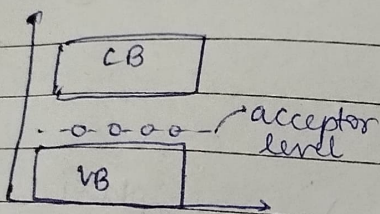 CB
acceptor
level
VB